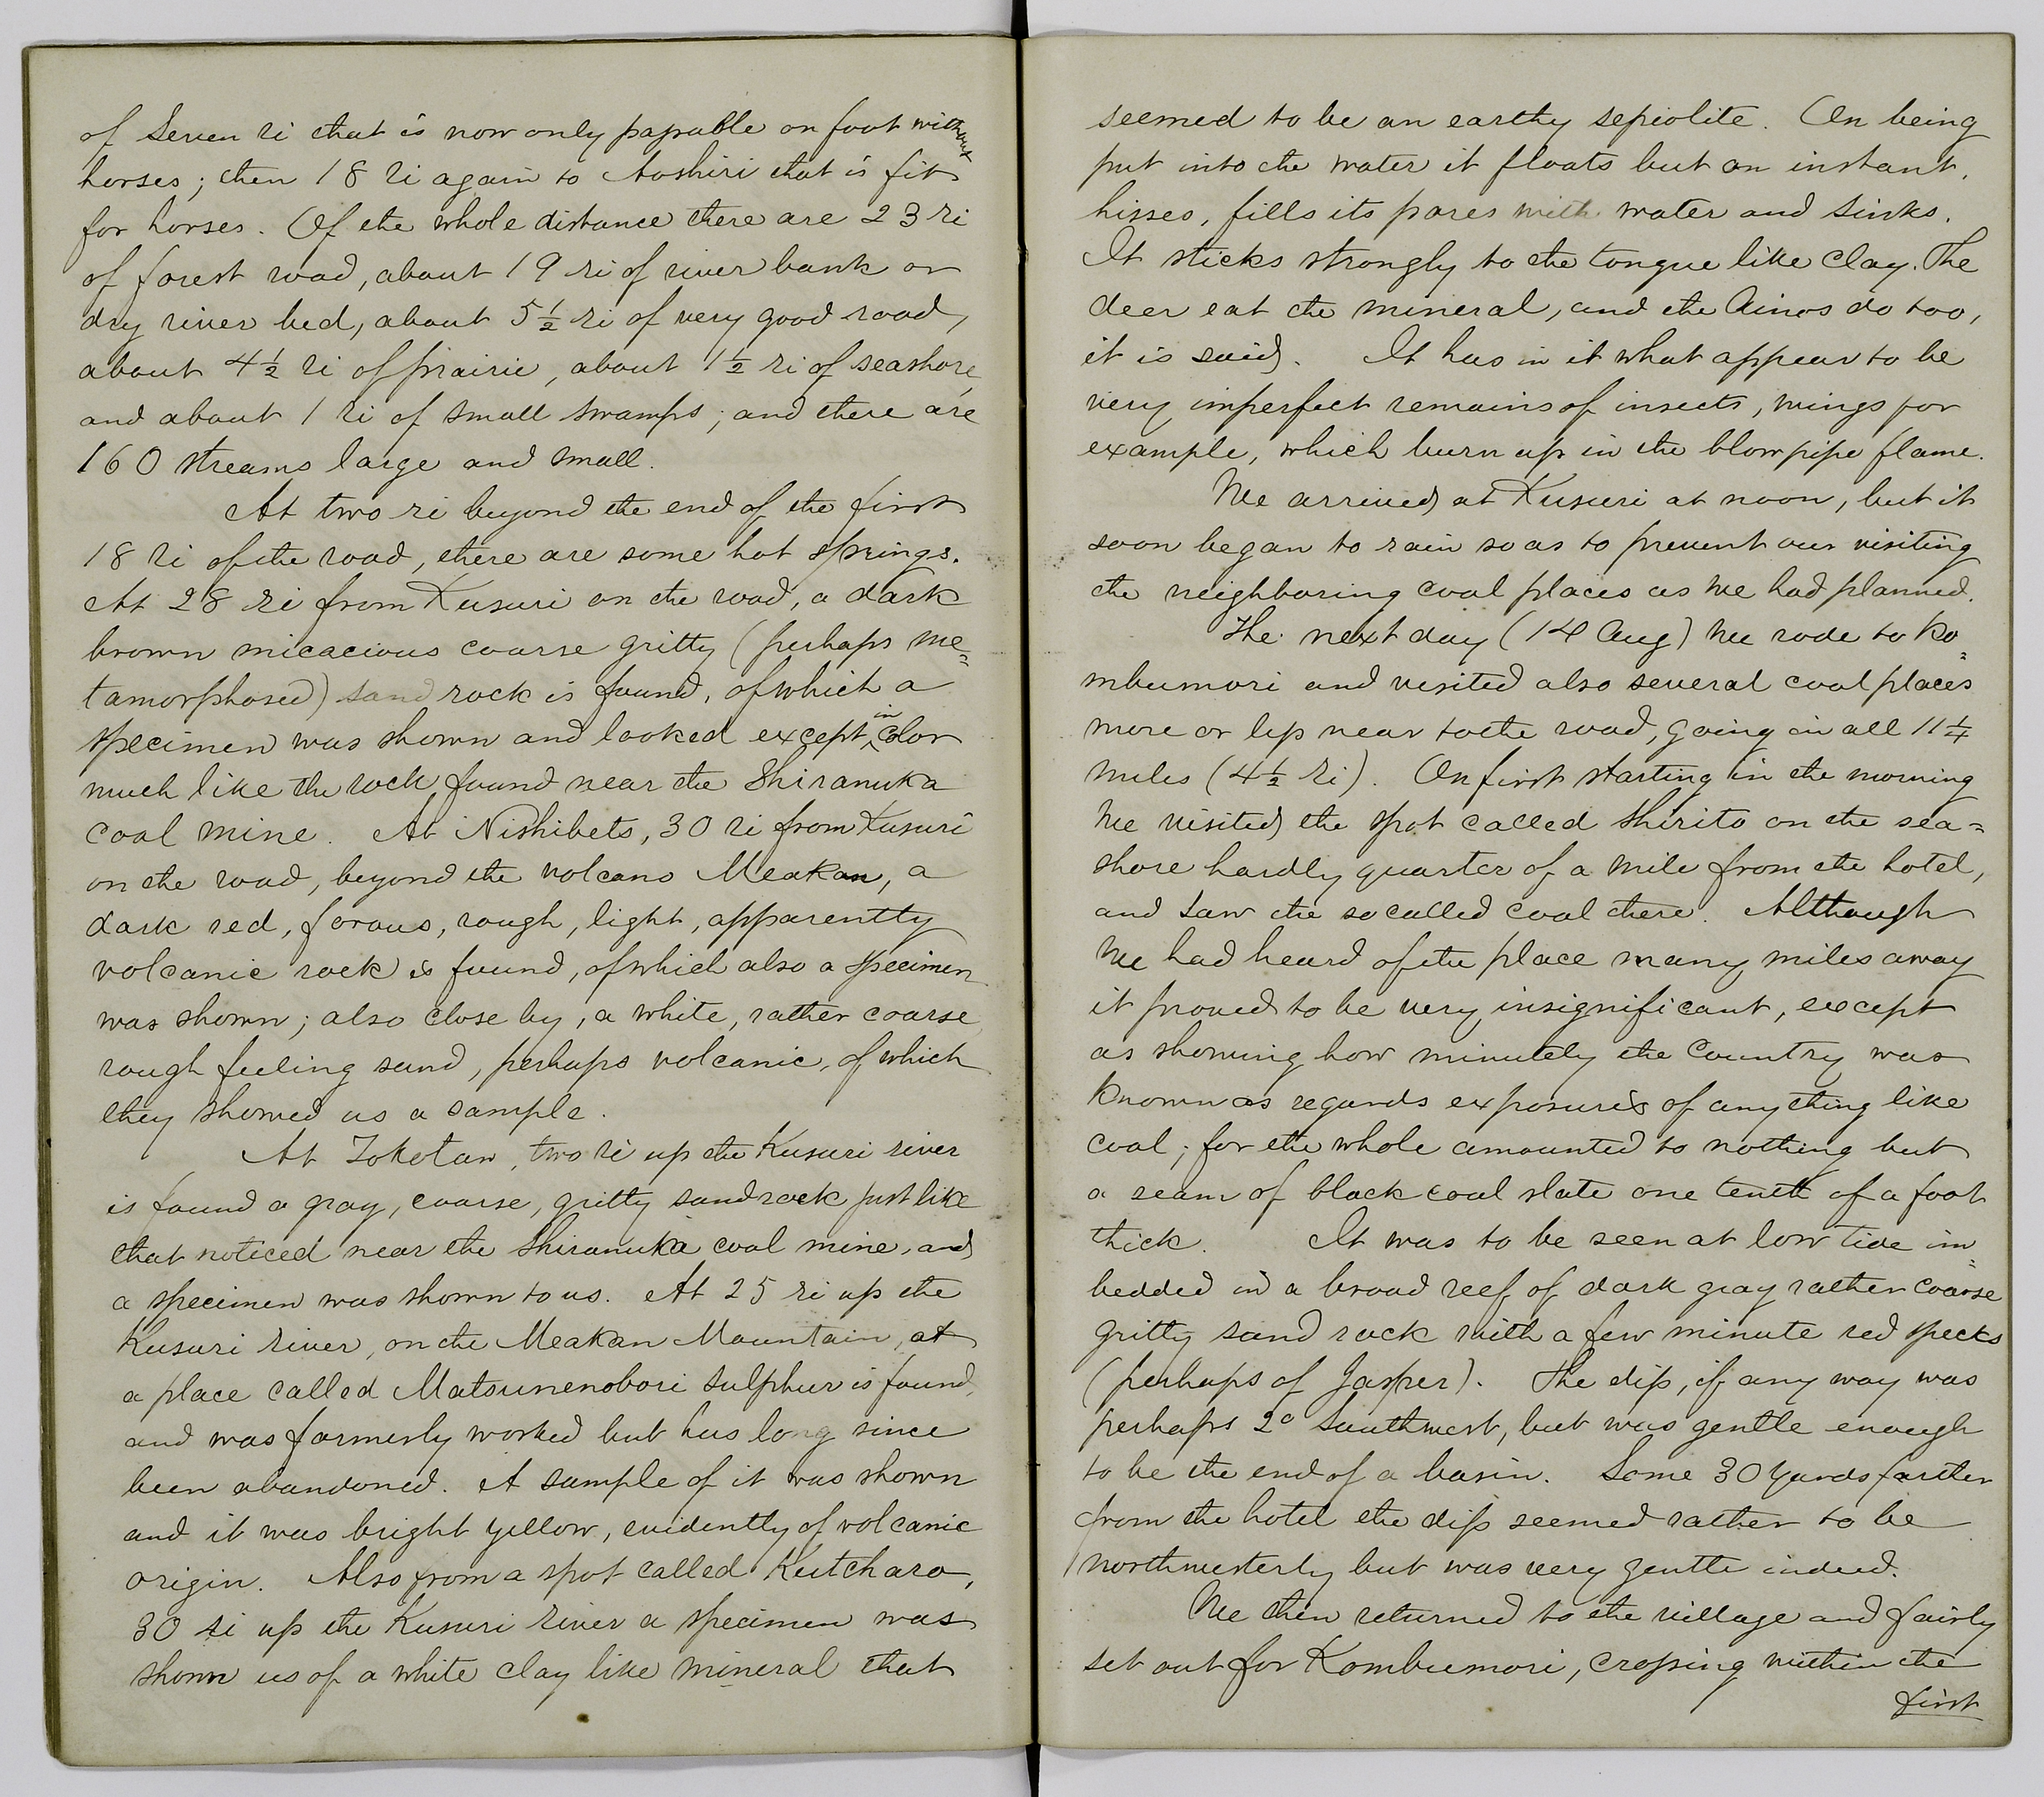 of seven ri that is now only passable on foot without
horses; then 18 ri again to Aoshiri that is fit
for horses. Of the whole distance there are 23 ri
of forest road, about 19 ri of river bank or
dry river bed, about 5 1/2 ri of very good road,
about 4 1/2 ri of prairie, about 1 1/2 ri of seashore,
and about 1 ri of small swamps; and there are
160 streams large and small.
At two ri beyond the end of the first
18 ri of the road, there are some hot springs.
At 28 ri from Kusuri on the road, a dark
brown micacious coarse gritty (perhaps me=
tamorphosed) sand rock is found, of which a
specimen was shown and looked except in color
much like the rock found near the Shiranuka
coal mine. At Nishibets, 30 ri from Kusuri
on the road, beyond the volcano Meakan, a
dark red, porous, rough, light, apparently
volcanic rock is found, of which also a specimen
was shown; also close by, a white, rather coarse
rough feeling sand, perhaps volcanic, of which
they showed us a sample.
At Tokotan, two ri up the Kusuri river
is found a gray, coarse, gritty sandrock just like
that noticed near the Shiranuka coal mine, and
a specimen was shown to us. At 25 ri up the
Kusuri river, on the Meakan Mountain, at
a place called Matsunenobori sulphur is found,
and was formerly worked but has long since
been abandoned. A sample of it was shown
and it was bright yellow, evidently of volcanic
origin. Also from a spot called Kutcharo,
30 ri up the Kusuri river a specimen was
shown us of a white clay like mineral that
seemed to be an earthy sepiolite. On being
put into the water it floats but an instant,
hisses, fills its pores with water and sinks.
It sticks strongly to the tongue like clay. The
deer eat the mineral, and the Ainos do too,
it is said. It has in it what appear to be
very imperfect remains of insects, wings for
example, which burn up in the blowpipe flame.
We arrived at Kusuri at noon, but it
soon began to rain so as to prevent our visiting
the neighboring coal places as we had planned.
The next day (14 Aug) we rode to Ko=
mbumori and visited also several coal places
more or less near to the road, going in all 11 1/4
miles (4 1/2 ri). On first starting in the morning
we visited the spot called Shirito on the sea=
shore hardly quarter of a mile from the hotel,
and saw the so called coal there. Although
we had heard of the place many miles away
it proved to be very insignificant, except
as showing how minutely the country was
known as regards exposures of anything like
coal; for the whole amounted to nothing but
a seam of black coal slate one tenth of a foot
thick. It was to be seen at low tide im=
bedded in a broad reef of dark gray rather coarse
gritty sand rock with a few minute red specks
(perhaps of Jasper). The dip, if any way was
perhaps 2° Southwest, but was gentle enough
to be the end of a basin. Some 30 yards farther
from the hotel the dip seemed rather to be
northwesterly but was very gentle indeed.
We then returned to the village and fairly
set out for Kombumori, crossing within the
first